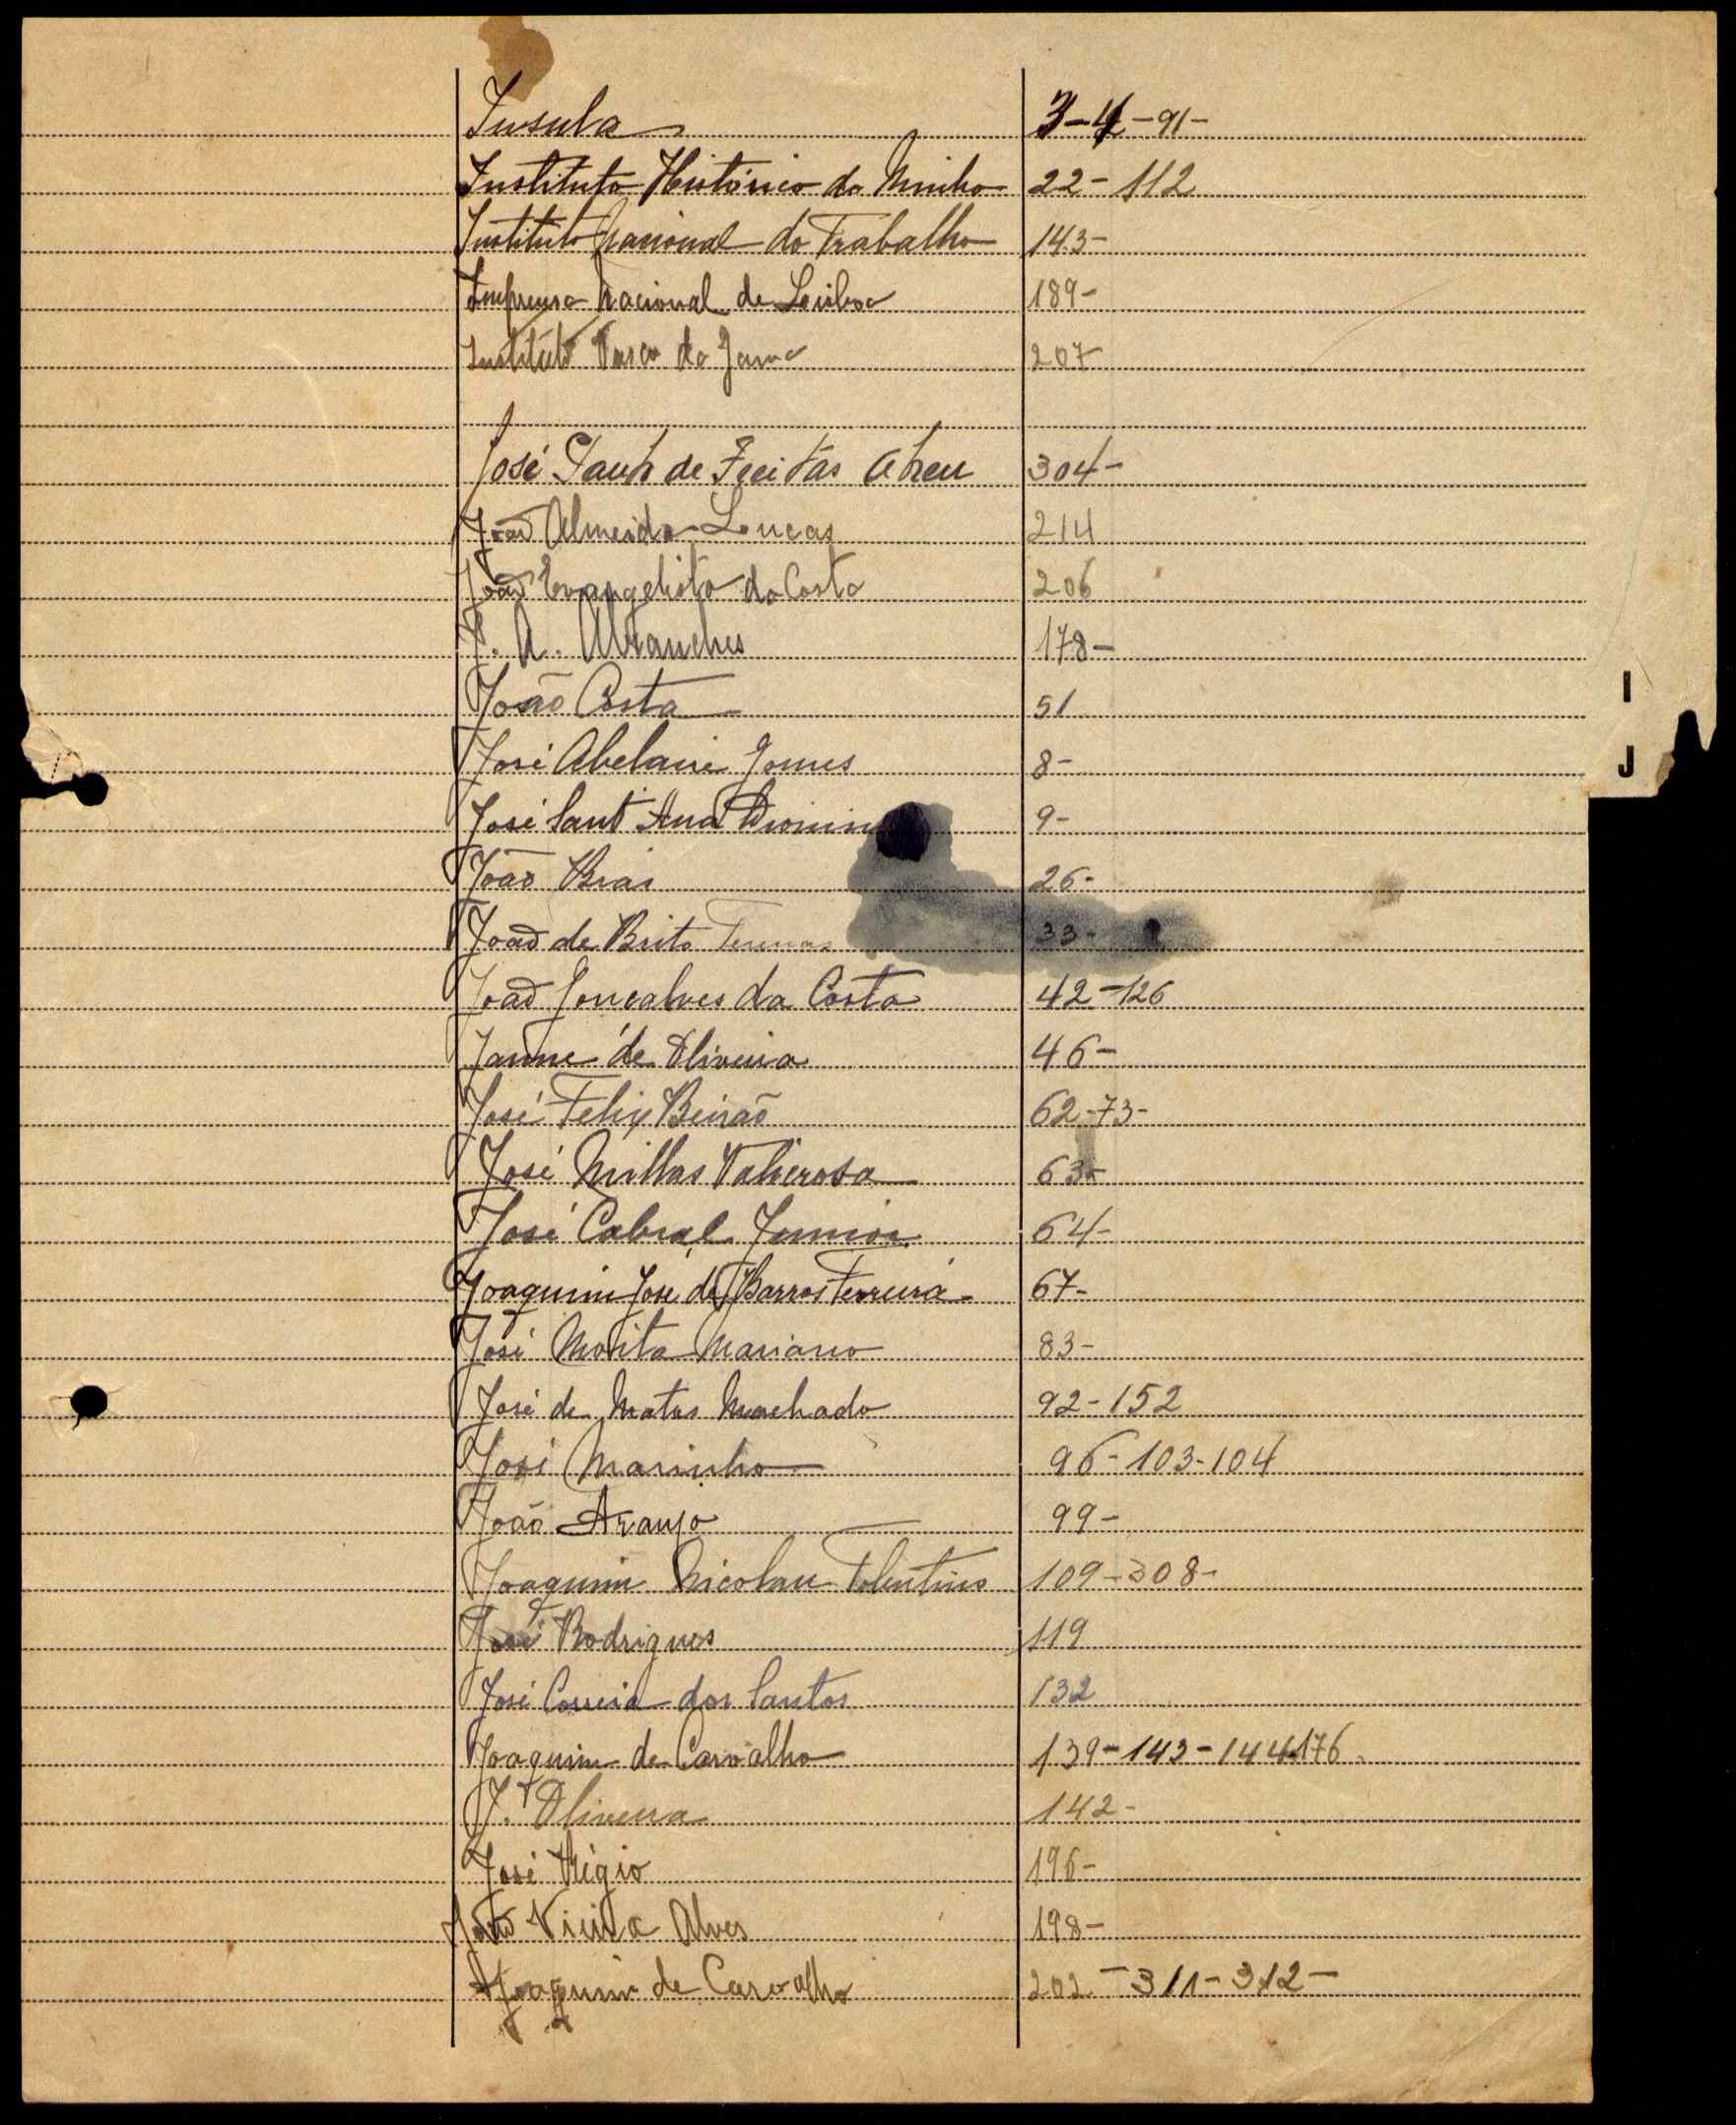 Insula 3-4-91-
Instituto Histórico do Minho 22-112
Instituto Nacional do Trabalho 143-
Imprensa Nacional de Lisboa 189-
Instituto Vasco da Gama 207
José Paulo de Freitas Abreu 304-
João Almeida Lucas 214
João Evangelista da Costa 206
J. A. Abranches 178-
João Costa 51
I
José Abelaire Gomes 8-
J
José Sant'Ana Dionin 9-
João Brás 26-
João de Brito 33-
João Gonçalves da Costa 42-126
Jaime de Oliveira 46-
José Felix Beirão 62-73-
José Millas Valicrosa 63-
José Cabral Junior 64-
Joaquim José de Barros Ferreira- 67-
José Motita Mariano 83-
José de Matos Machado 92-152
José Marinho 96-103-104
João Araujo 99-
Joaquim Nicolau Tolentino 109-308-
José Rodrigues 119
José Correia dos Santos 132
Joaquim de Carvalho 139-143-144-176
J. Oliveira 142-
José Régio 196-
João Vieira Alves 198-
Joaquim de Carvalho 202-311-312-